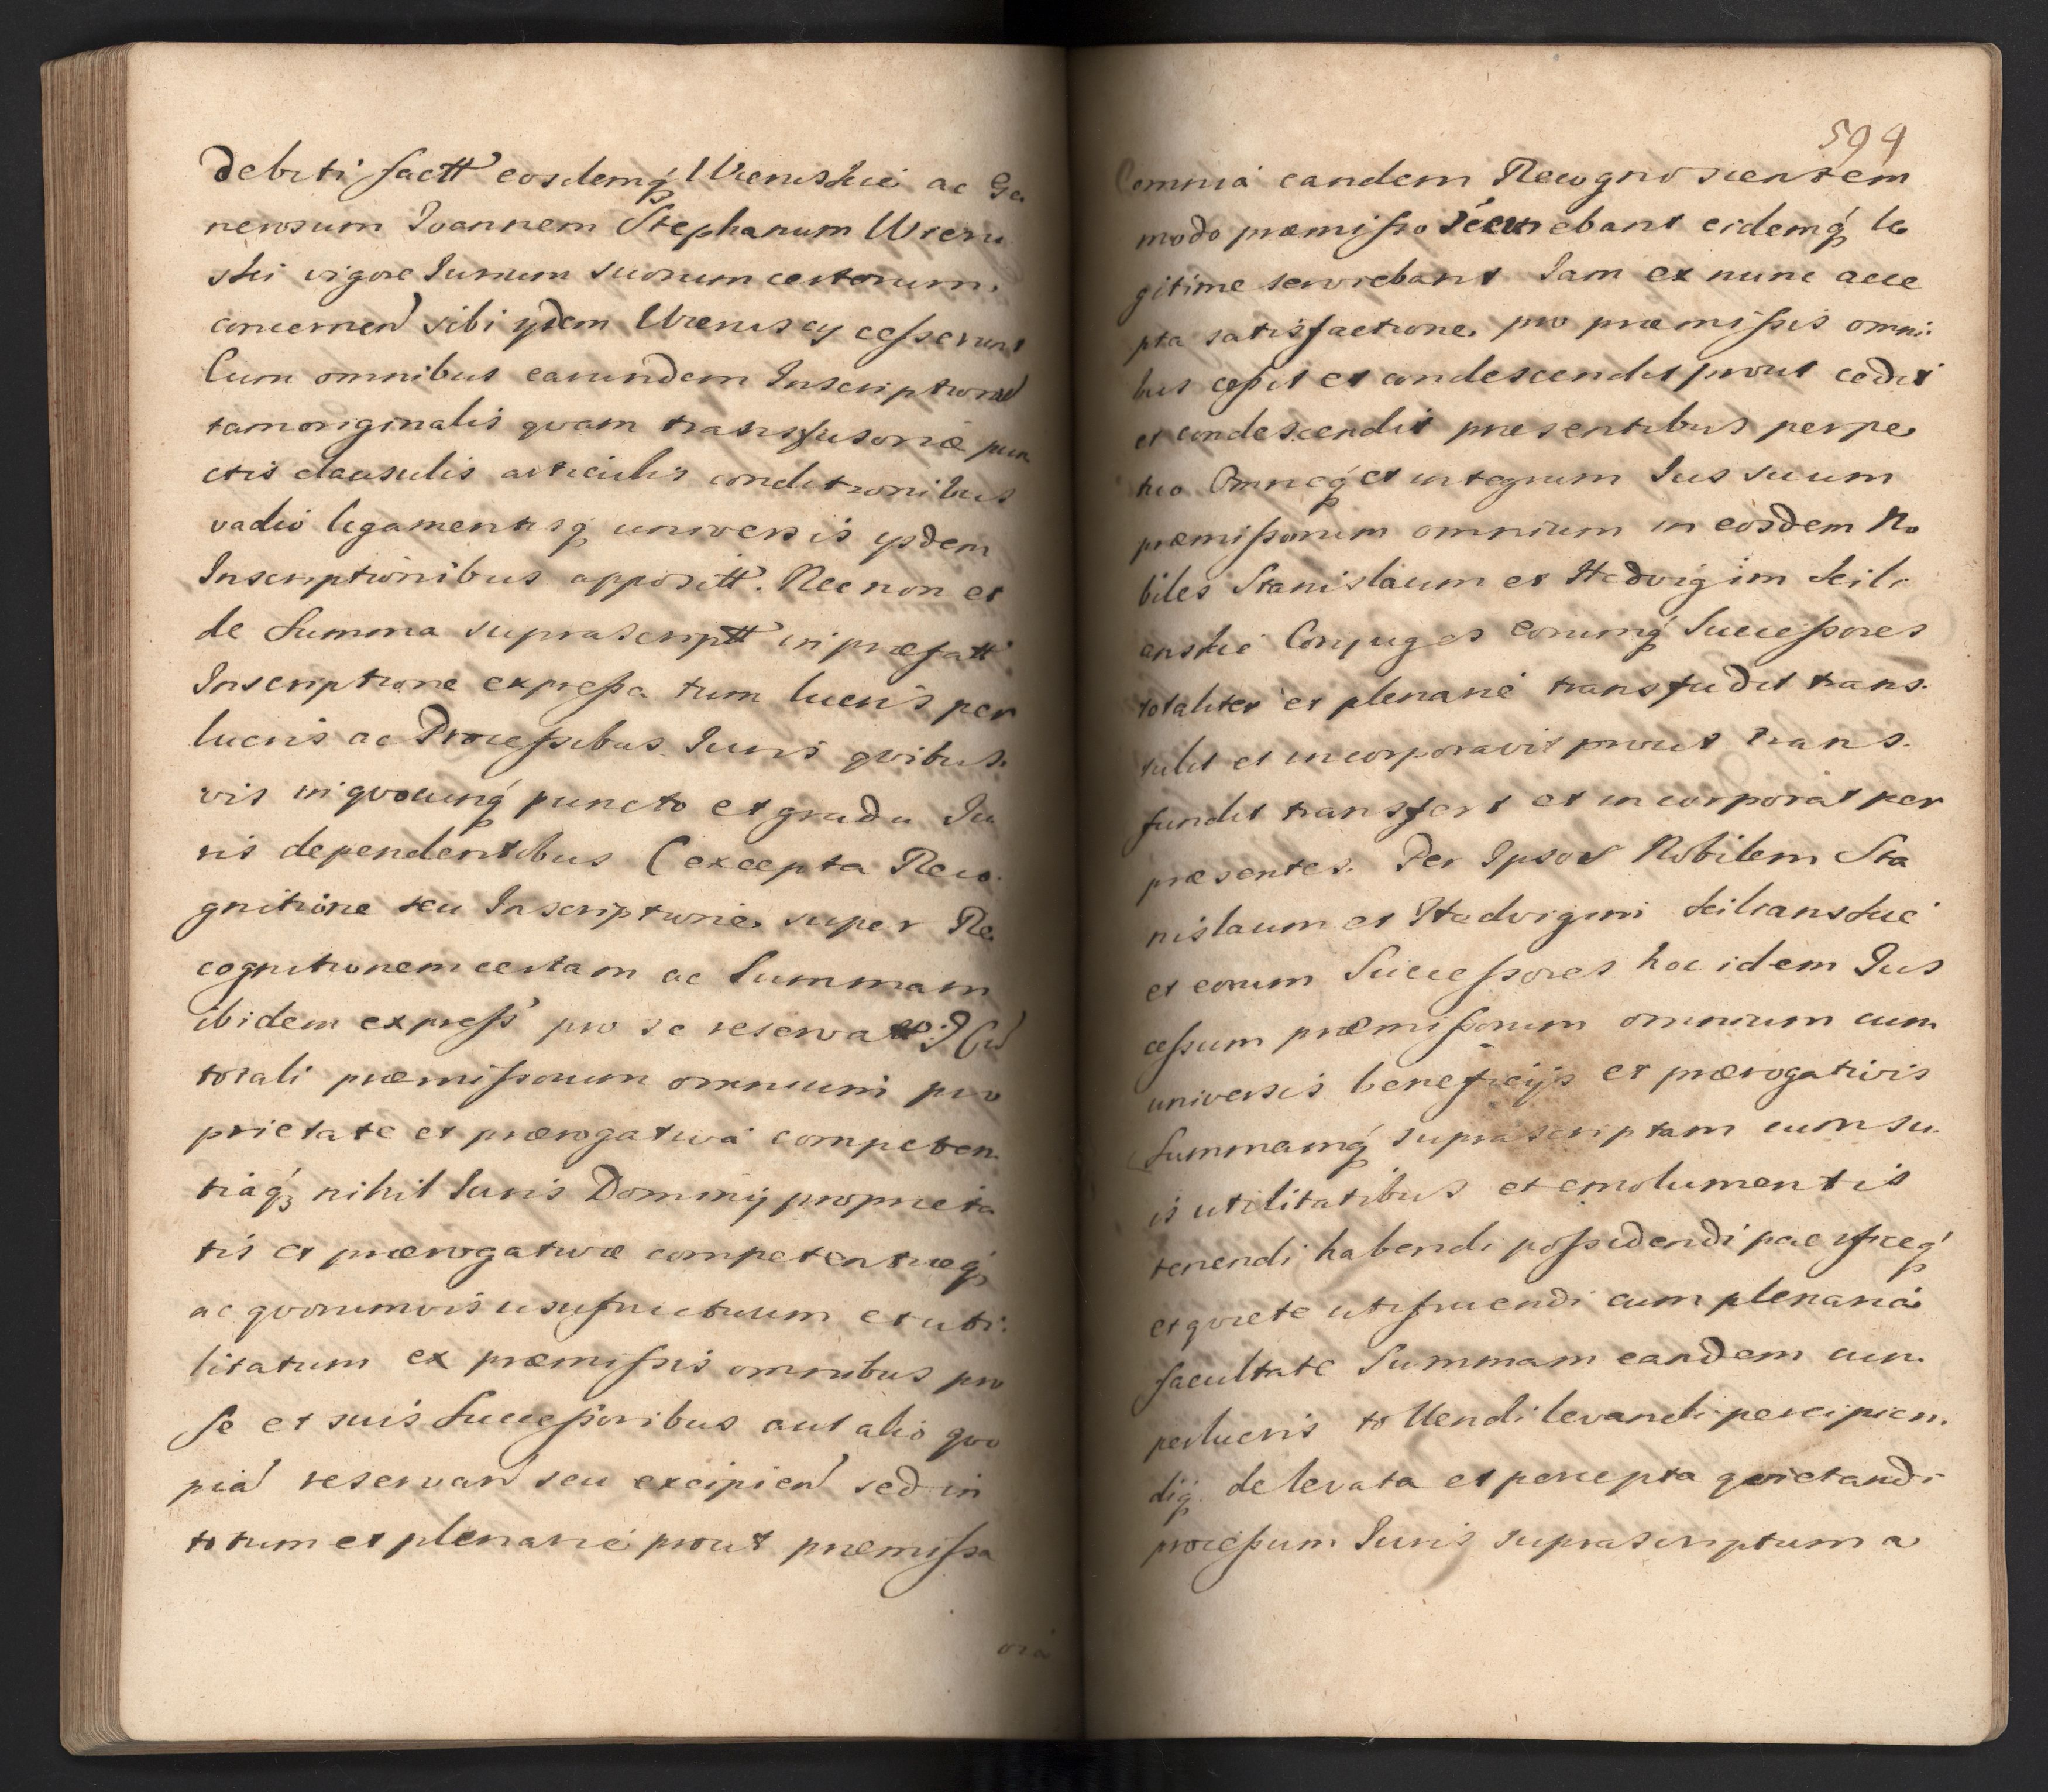 debiti factt eosdemq́ Wreniskie ac Ge
nerosum Joannem Stephanum Wreni
ski vigore Jurium suorum certorum
concernen sibi ijdem Wreniscy cesserunt
Cum omnibus earundem Inscription
tam originalis qvam transfusoriæ pun
ctis clausulis articulis conditionibus
vadio ligamentisq universis ijsdem
Inscriptionibus appositt. Nec non et
de Summa suprascriptt in præfatt
Inscriptione expressa tum lucris per
lucris ac Processibus Juris qvibus
vis in qvocunq́ puncto et gradu Ju
ris dependentibus (excepta Reco
gnitione seu Inscriptione super Re
cognitionem certam ac Summam
ibidem express pro se reservato:) Cu
totali præmissorum omnium pro
prietate et prærogativá competen
tiáq́ nihil Juris Dominij proprieta
tis et prærogativæ competentiæq́
ac qvorumvis usufructuum et uti
litatum ex præmissis omnibus pro
se et suis Successoribus aut alio qvo
piá reservan seu excipien sed in
totum et plenarié prout præmissa
594
omnia eandem Recognoscentem
modo præmisso
eidemq́ le
gitime serviebant Jam ex nunc acce
pta satisfactione pro præmissis omni
bus cessit et condescendit prout cedit
et condescendit presentibus perpe
tuo Omneq́ et integrum Jus suum
præmissorum omnium in eosdem No
biles Stanislaum et Hedvigim Kili
anskie Conjuges eorumq́ Successores
totaliter et plenarié transfudit trans
tulit et incorporavit prout trans
fundit transfert et incorporat per
præsentes. Per Ipsos Nobilem Sta
nislaum et Hedvigim Kilianskie
et eorum Successores hoc idem Jus
cessum præmissorum omnium cum
universis beneficijs et prærogativis
Summamq́ suprascriptam cum su
is utilitatibus et emolumentis
tenendi habendi possidendi pacificeq́
et qviete utifruendi cum plenaria
facultate Summam eandem cum
perlucris tollendi levandi percipien
diq́ de levata et percepta qvietandi
processum Juris suprascriptum a